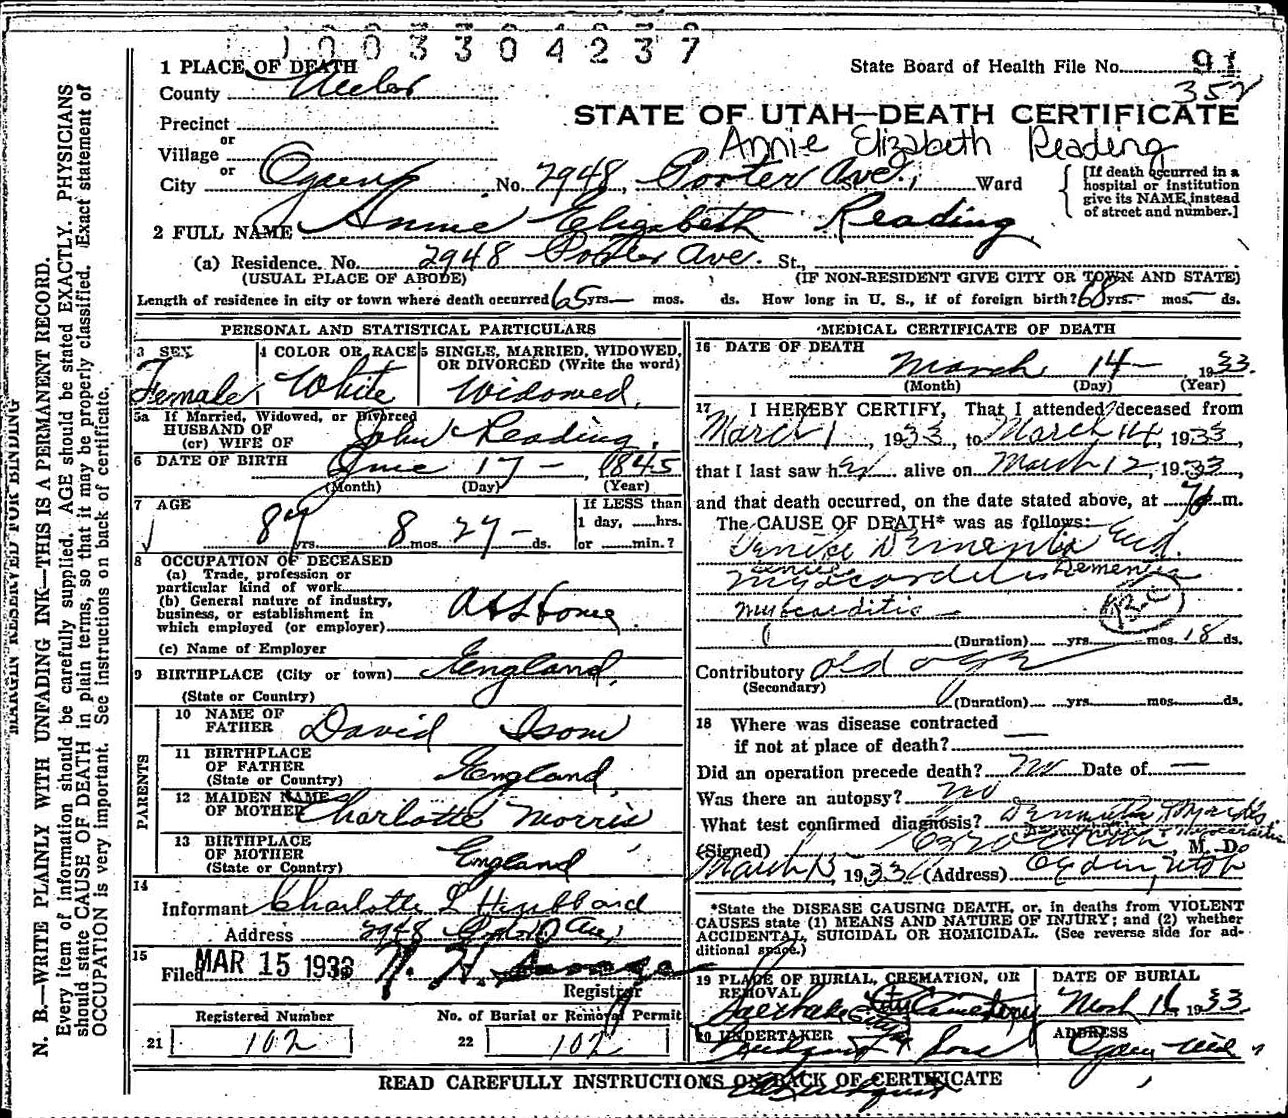 1003304237
1 PLACE OF DEATH
State Board of Health File No. 91
352
County Weber
STATE OF UTAH—DEATH CERTIFICATE
Precinct
Annie Elizabeth Reading
or
Village
or
City Ogden No. 2948 Porter Ave. St., Ward
[If death occurred in a hospital or institution give its NAME instead of street and number.]
2 FULL NAME Annie Elizabeth Reading
(a) Residence. No. 2948 Porter Ave. St.,
(USUAL PLACE OF ABODE) (IF NON-RESIDENT GIVE CITY OR TOWN AND STATE)
Length of residence in city or town where death occurred 65 yrs. — mos. ds. How long in U. S., if of foreign birth? 68 yrs. — mos. — ds.
PERSONAL AND STATISTICAL PARTICULARS
3 SEX
Female
4 COLOR OR RACE
White
5 SINGLE, MARRIED, WIDOWED, OR DIVORCED (Write the word)
Widowed
5a If Married, Widowed, or Divorced
HUSBAND OF
(or) WIFE OF John Reading
6 DATE OF BIRTH June 17 — 1845
(Month) (Day) (Year)
7 AGE
87 yrs. 8 mos. 27 — ds.
If LESS than
1 day, ......hrs.
or ......min.?
8 OCCUPATION OF DECEASED
(a) Trade, profession or
particular kind of work
(b) General nature of industry,
business, or establishment in
which employed (or employer) At Home
(c) Name of Employer
9 BIRTHPLACE (City or town) England
(State or Country)
PARENTS
10 NAME OF
FATHER David Isom
11 BIRTHPLACE
OF FATHER England
(State or Country)
12 MAIDEN NAME
OF MOTHER Charlotte Morris
13 BIRTHPLACE
OF MOTHER England
(State or Country)
14
Informant Charlotte L Hubbard
Address 2948 Ave
15
Filed MAR 15 1933
Registrar
Registered Number
No. of Burial or Removal Permit
21 102
22 102
MEDICAL CERTIFICATE OF DEATH
16 DATE OF DEATH
March 14 — 1933
(Month) (Day) (Year)
17 I HEREBY CERTIFY, That I attended deceased from
March 1, 1933, to March 14, 1933
that I last saw her alive on March 12, 1933
and that death occurred, on the date stated above, at m.
The CAUSE OF DEATH* was as follows:
Senile Dementia
Senile Dementia
Myocarditis
myocarditis
(Duration) yrs. mos. 18 ds.
Contributory old age
(Secondary)
(Duration) yrs. mos. ds.
18 Where was disease contracted
if not at place of death? —
Did an operation precede death? No Date of —
Was there an autopsy? no
What test confirmed diagnosis?
(Signed) , M. D.
March 15 1933 (Address) Ogden, Utah
*State the DISEASE CAUSING DEATH, or, in deaths from VIOLENT
CAUSES state (1) MEANS AND NATURE OF INJURY; and (2) whether
ACCIDENTAL, SUICIDAL OR HOMICIDAL. (See reverse side for ad-
ditional space.)
19 PLACE OF BURIAL, CREMATION, OR REMOVAL
City Cemetery
DATE OF BURIAL
March 16 1933
20 UNDERTAKER
& Sons
ADDRESS
Ogden Utah
READ CAREFULLY INSTRUCTIONS ON BACK OF CERTIFICATE
MARGIN RESERVED FOR BINDING
N. B.—WRITE PLAINLY WITH UNFADING INK—THIS IS A PERMANENT RECORD.
Every item of information should be carefully supplied. AGE should be stated EXACTLY. PHYSICIANS
should state CAUSE OF DEATH in plain terms, so that it may be properly classified. Exact statement of
OCCUPATION is very important. See instructions on back of certificate.